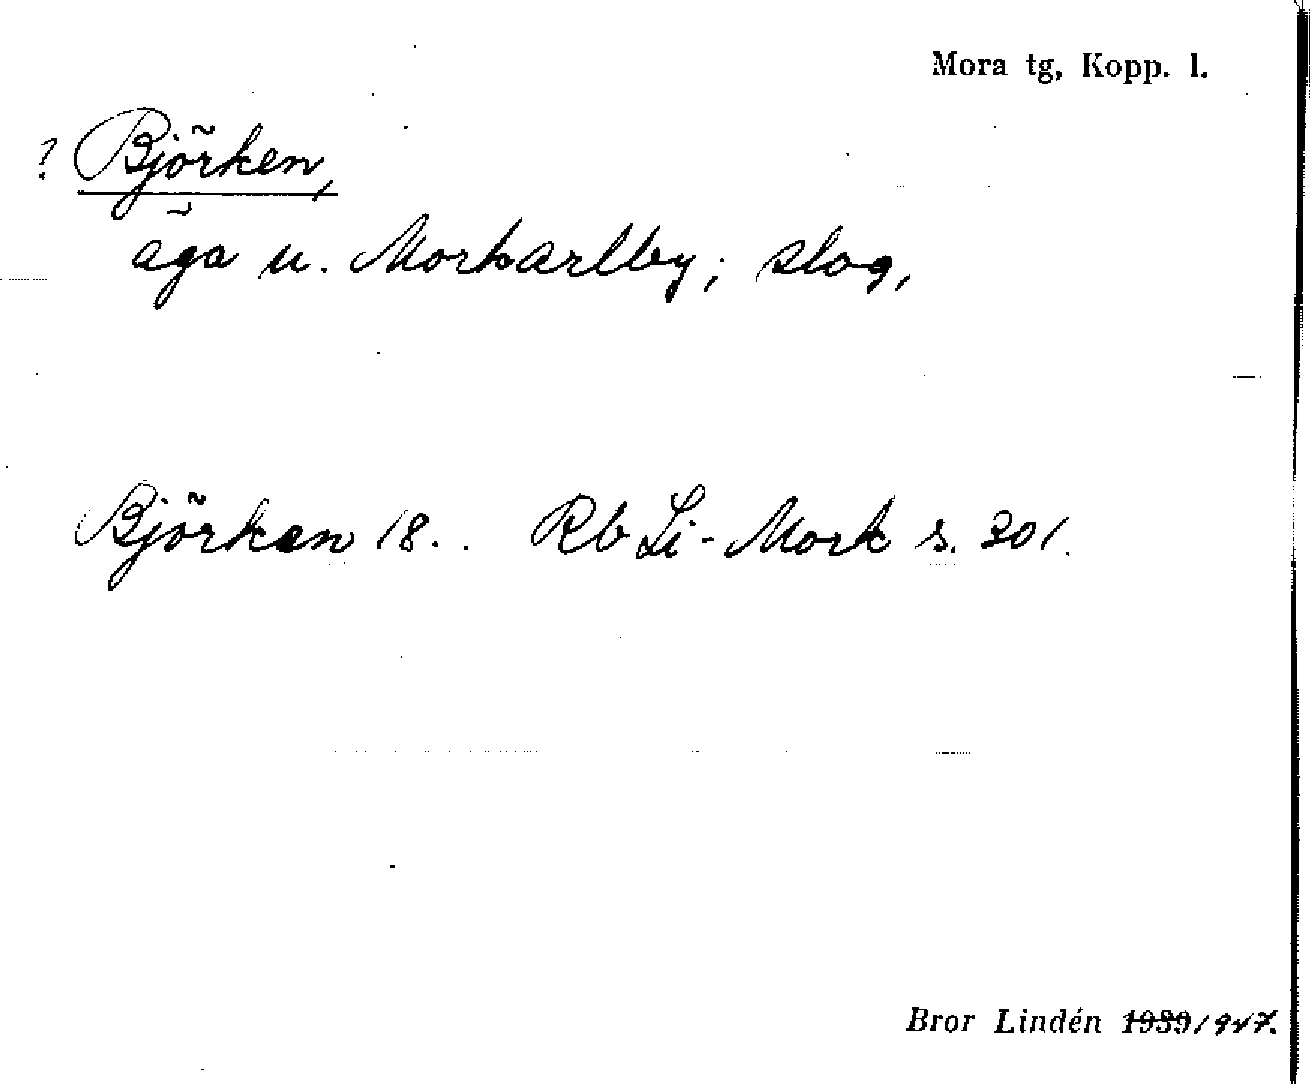 Mora tg, Kopp. l.
? Björken,
äga u. Morkarlby; slog,
Björken 18.. Rb Li-Mork s. 301.
Bror Lindén 1939 1947.